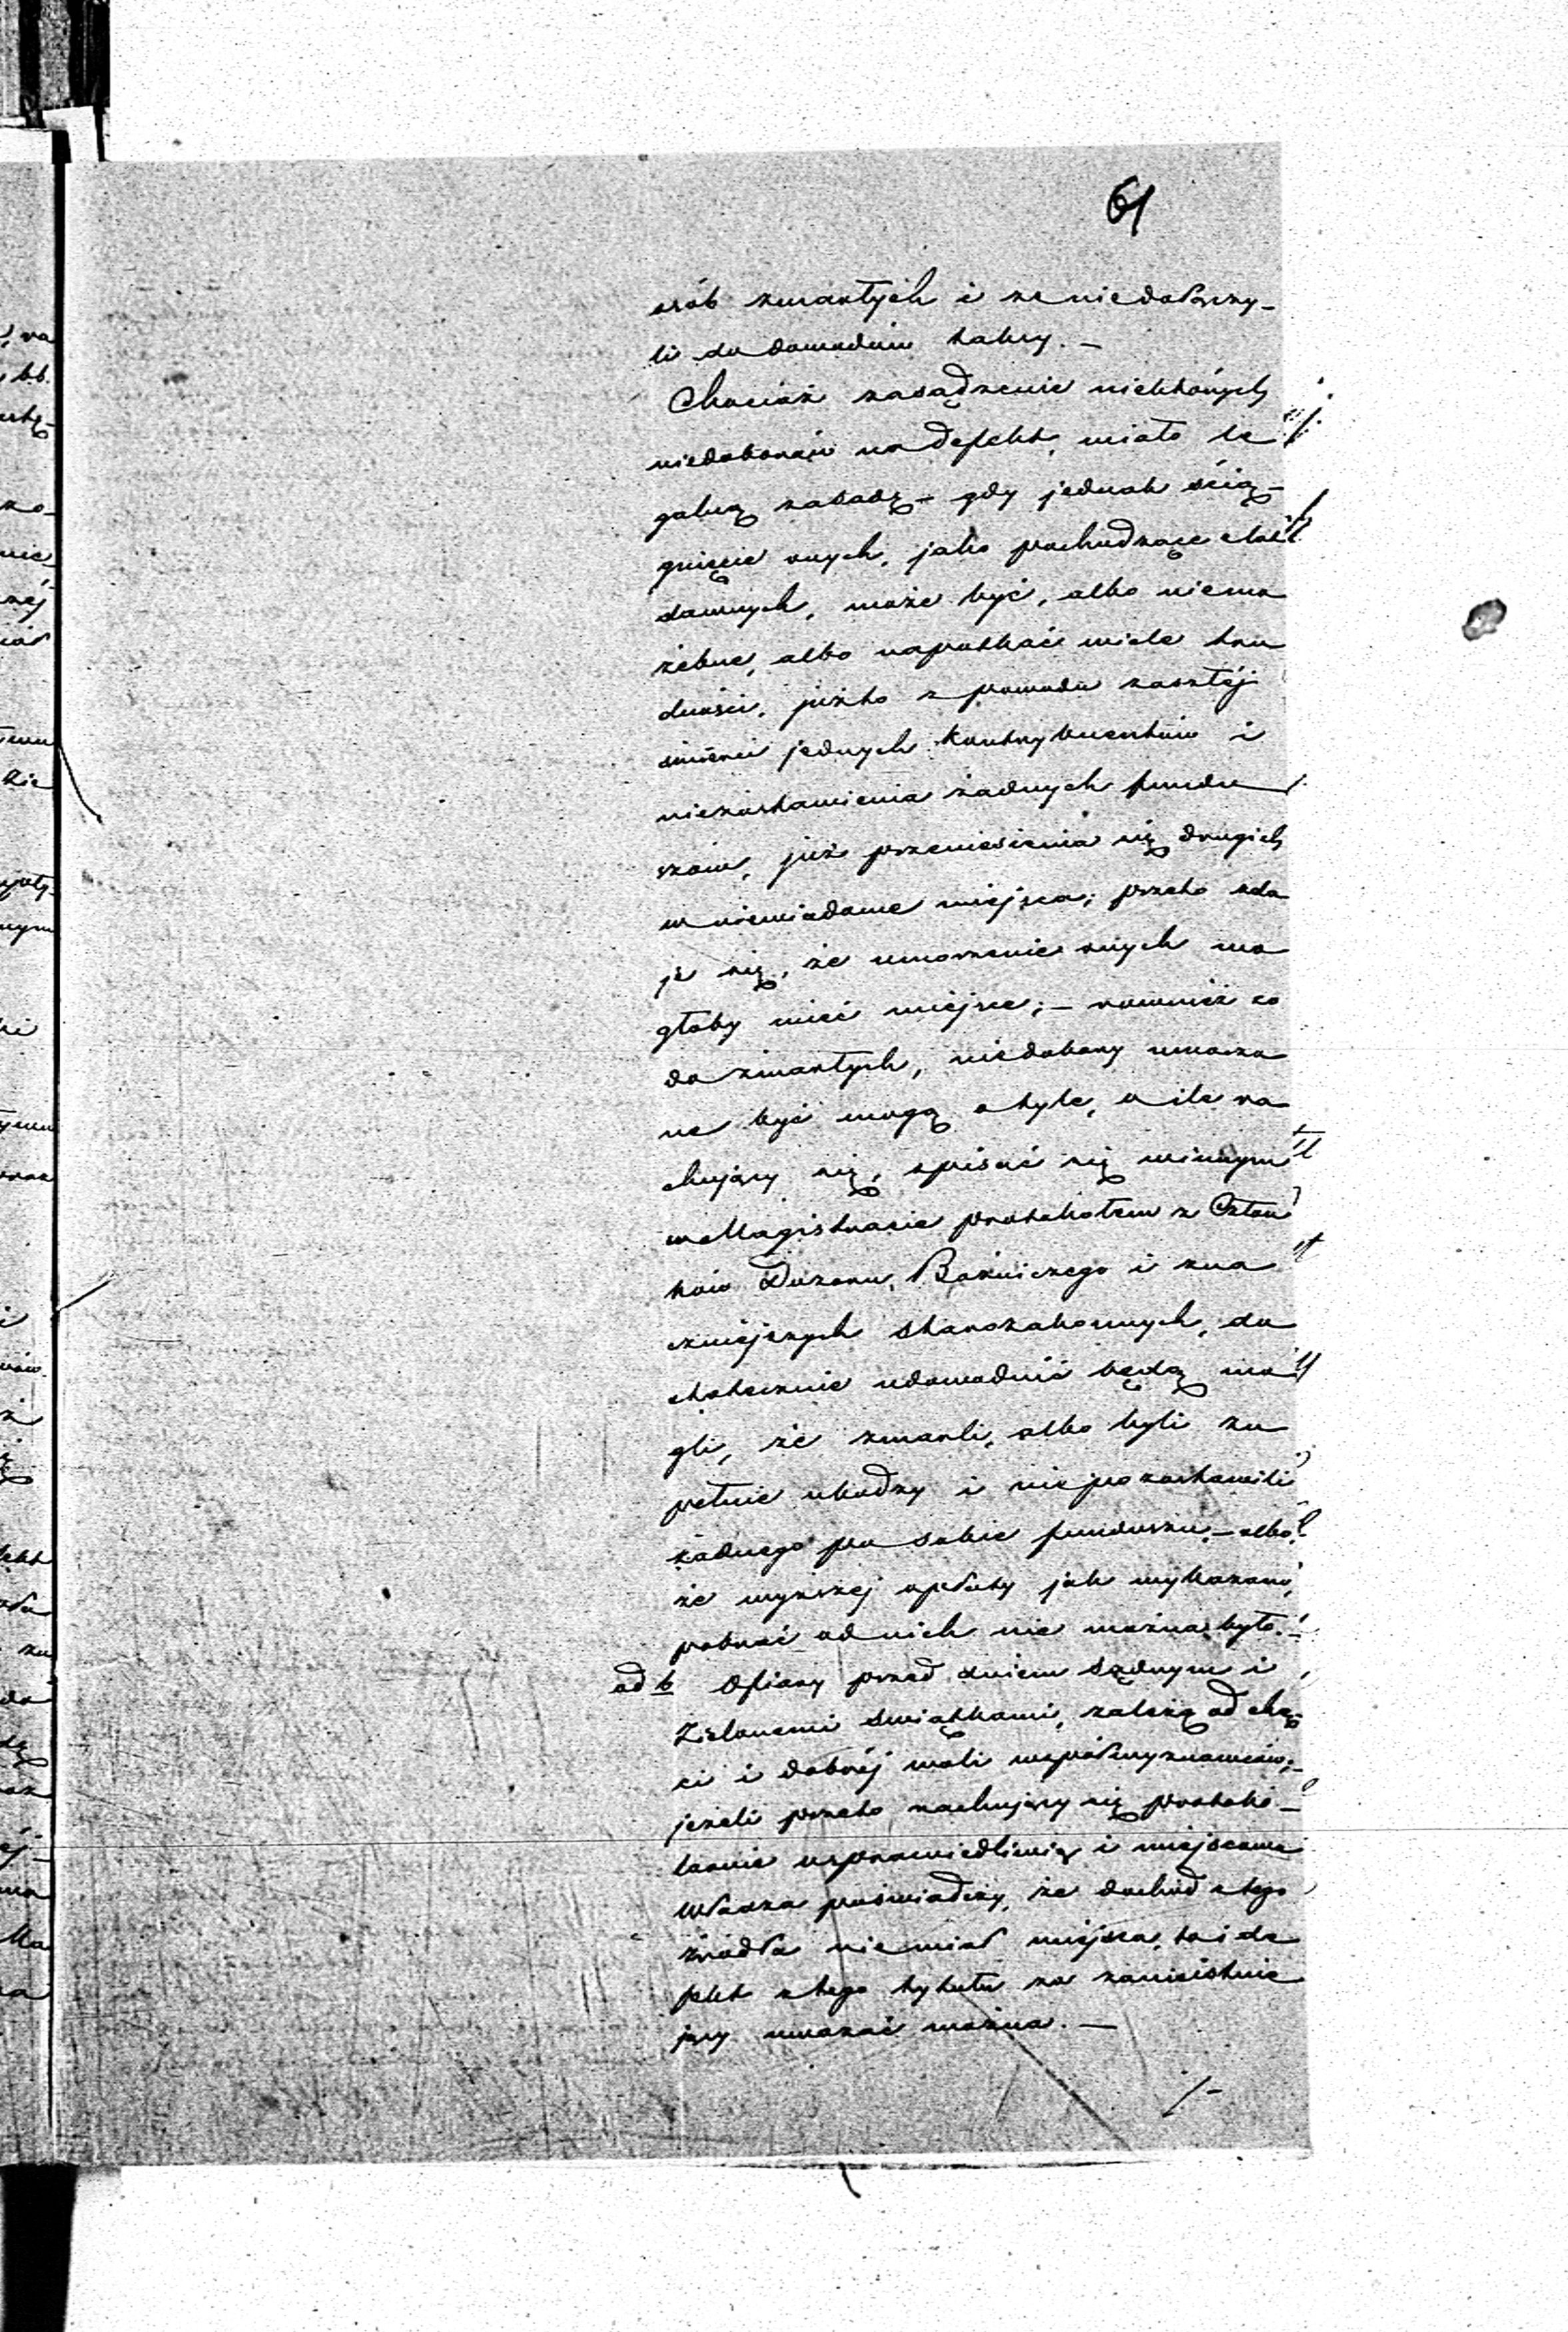 61
osób zmarłych i że niedołączy-
li do dowodów takży. —
Chociaż zasądzenie niektórych
niedoborów na defekt, miało le
galną zasadę — gdy jednak ścią-
gnięcie onych, jako pochodzące z lat
dawnych, może być, albo niemo
żebne, albo napotkać wiele tru
dności, jużto z powodu zaszłéj
śmierci jednych kontrybuentów i
niezostawienia żadnych fundu
szów, już przeniesienia się drugich
w niewiadome miejsca; przeto zda
je się, że umorzenie onych mo
głoby mieć miejsce; — rownież co
do zmarłych, niedobory umorzo
ne być mogą o tyle, o ile ra
chujący się, spisać się winnym
w Magistracie protokołem z Człon
ków Dozoru Bożniczego i zna
czniejszych starozakonnych, do
statecznie udowodnić będą mo
gli, że zmarli, albo byli zu
pełnie ubodzy i nie pozostawili
żadnego po sobie funduszu, — albo
że wyższej opłaty jak wykazano,
pobrać od nich nie można było. —
ad b Ofiary przed dniem sądnym i
Zielonemi Swiątkami, zależą od chę
ci i dobréj woli współwyznawców; —
jeżeli przeto rachujący się protoko-
larnie usprawiedliwią i miejscowa
Władza poświadczy, że dochód z tego
źródła nie miał miejsca, to i de
fekt z tego tytułu za nieistnie
jący uważać można. —